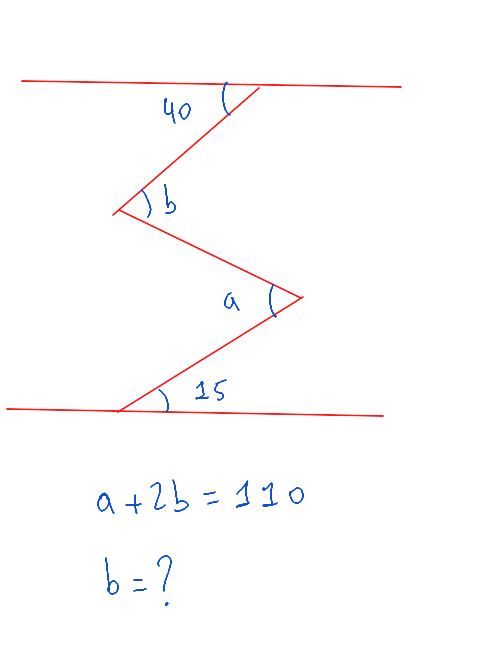 40
b
a
15
a + 2b = 110
b = ?